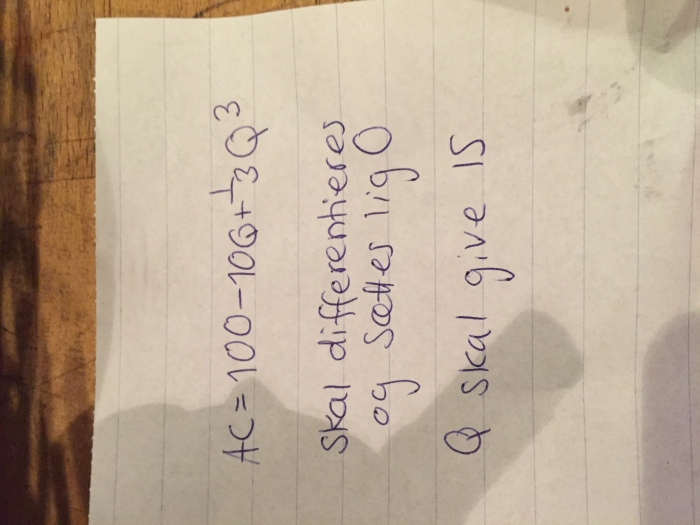 AC = 100-10Q+⅓Q³
Skal differentieres
og sættes lig 0
Q skal give 15